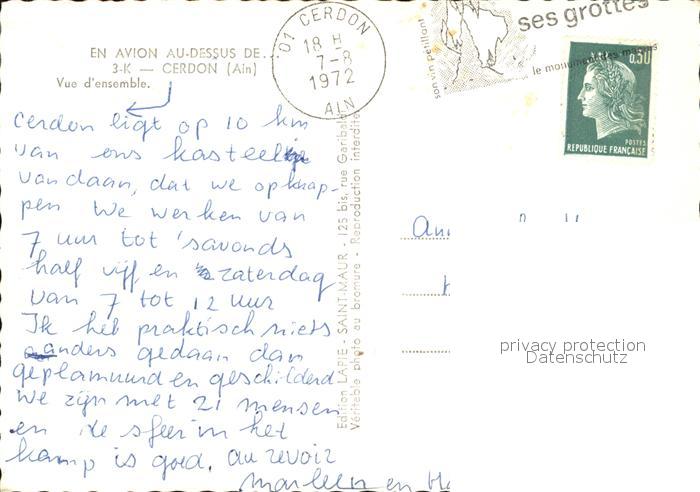 EN AVION AU-DESSUS DE...
3-K — CERDON (Ain)
Vue d'ensemble.
01 CERDON
18 H
7-8
1972
AIN
son vin pétillant
ses grottes
le monument des maquis
0,50
POSTES
REPUBLIQUE FRANÇAISE
Cerdon ligt op 10 km
van ons kasteeltje
vandaan, dat we opknap-
pen We werken van
7 uur tot 'savonds
half vijf en zaterdag
van 7 tot 12 uur
Ik heb praktisch niets
anders gedaan dan
geplamuurd en geschilderd
We zijn met 21 mensen
en de sfeer in het
kamp is goed. au revoir
Marleen en
Edition LAPIE - SAINT-MAUR - 125 bis, rue Garibaldi
Véritable photo au bromure - Reproduction interdite
privacy protection
Datenschutz